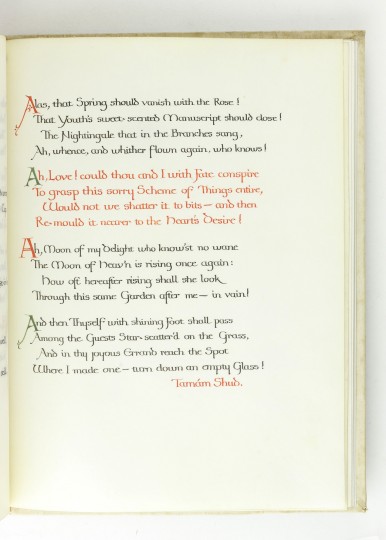 Alas, that Spring should vanish with the Rose!
That Youth's sweet-scented Manuscript should close!
The Nightingale that in the Branches sang,
Ah, whence, and whither flown again, who knows!
Ah, Love! could thou and I with Fate conspire
To grasp this sorry Scheme of Things entire,
Would not we shatter it to bits — and then
Re-mould it nearer to the Heart's Desire!
Ah, Moon of my Delight who know'st no wane
The Moon of Heav'n is rising once again:
How oft hereafter rising shall she look
Through this same Garden after me — in vain!
And then Thyself with shining Foot shall pass
Among the Guests Star-scatter'd on the Grass,
And in thy joyous Errand reach the Spot
Where I made one — turn down an empty Glass!
Tamám Shud.